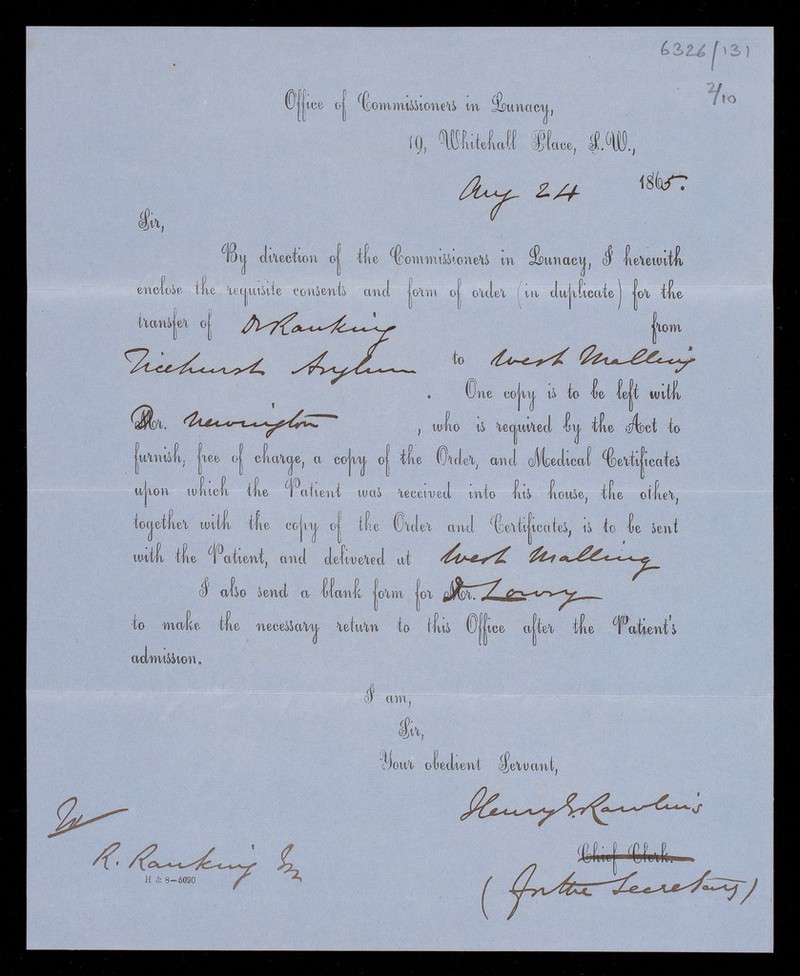 6326/131
2/10
Office of Commissioners in Lunacy,
19, Whitehall Place, S.W.,
Aug 24 1865.
Sir,
By direction of the Commissioners in Lunacy, I herewith
enclose the requisite consents and form of order (in duplicate) for the
transfer of Dr Ranking from
Ticehurst Asylum to West Malling
. One copy is to be left with
Dr. Newington, who is required by the Act to
furnish, free of charge, a copy of the Order, and Medical Certificates
upon which the Patient was received into his house, the other,
together with the copy of the Order and Certificates, is to be sent
with the Patient, and delivered at West Malling
I also send a blank form for Dr. Lowry
to make the necessary return to this Office after the Patient's
admission.
I am,
Sir,
Your obedient Servant,
Henry J. Rawlins
Chief Clerk.
(for the Secretary)
R. Ranking
H & S—5090